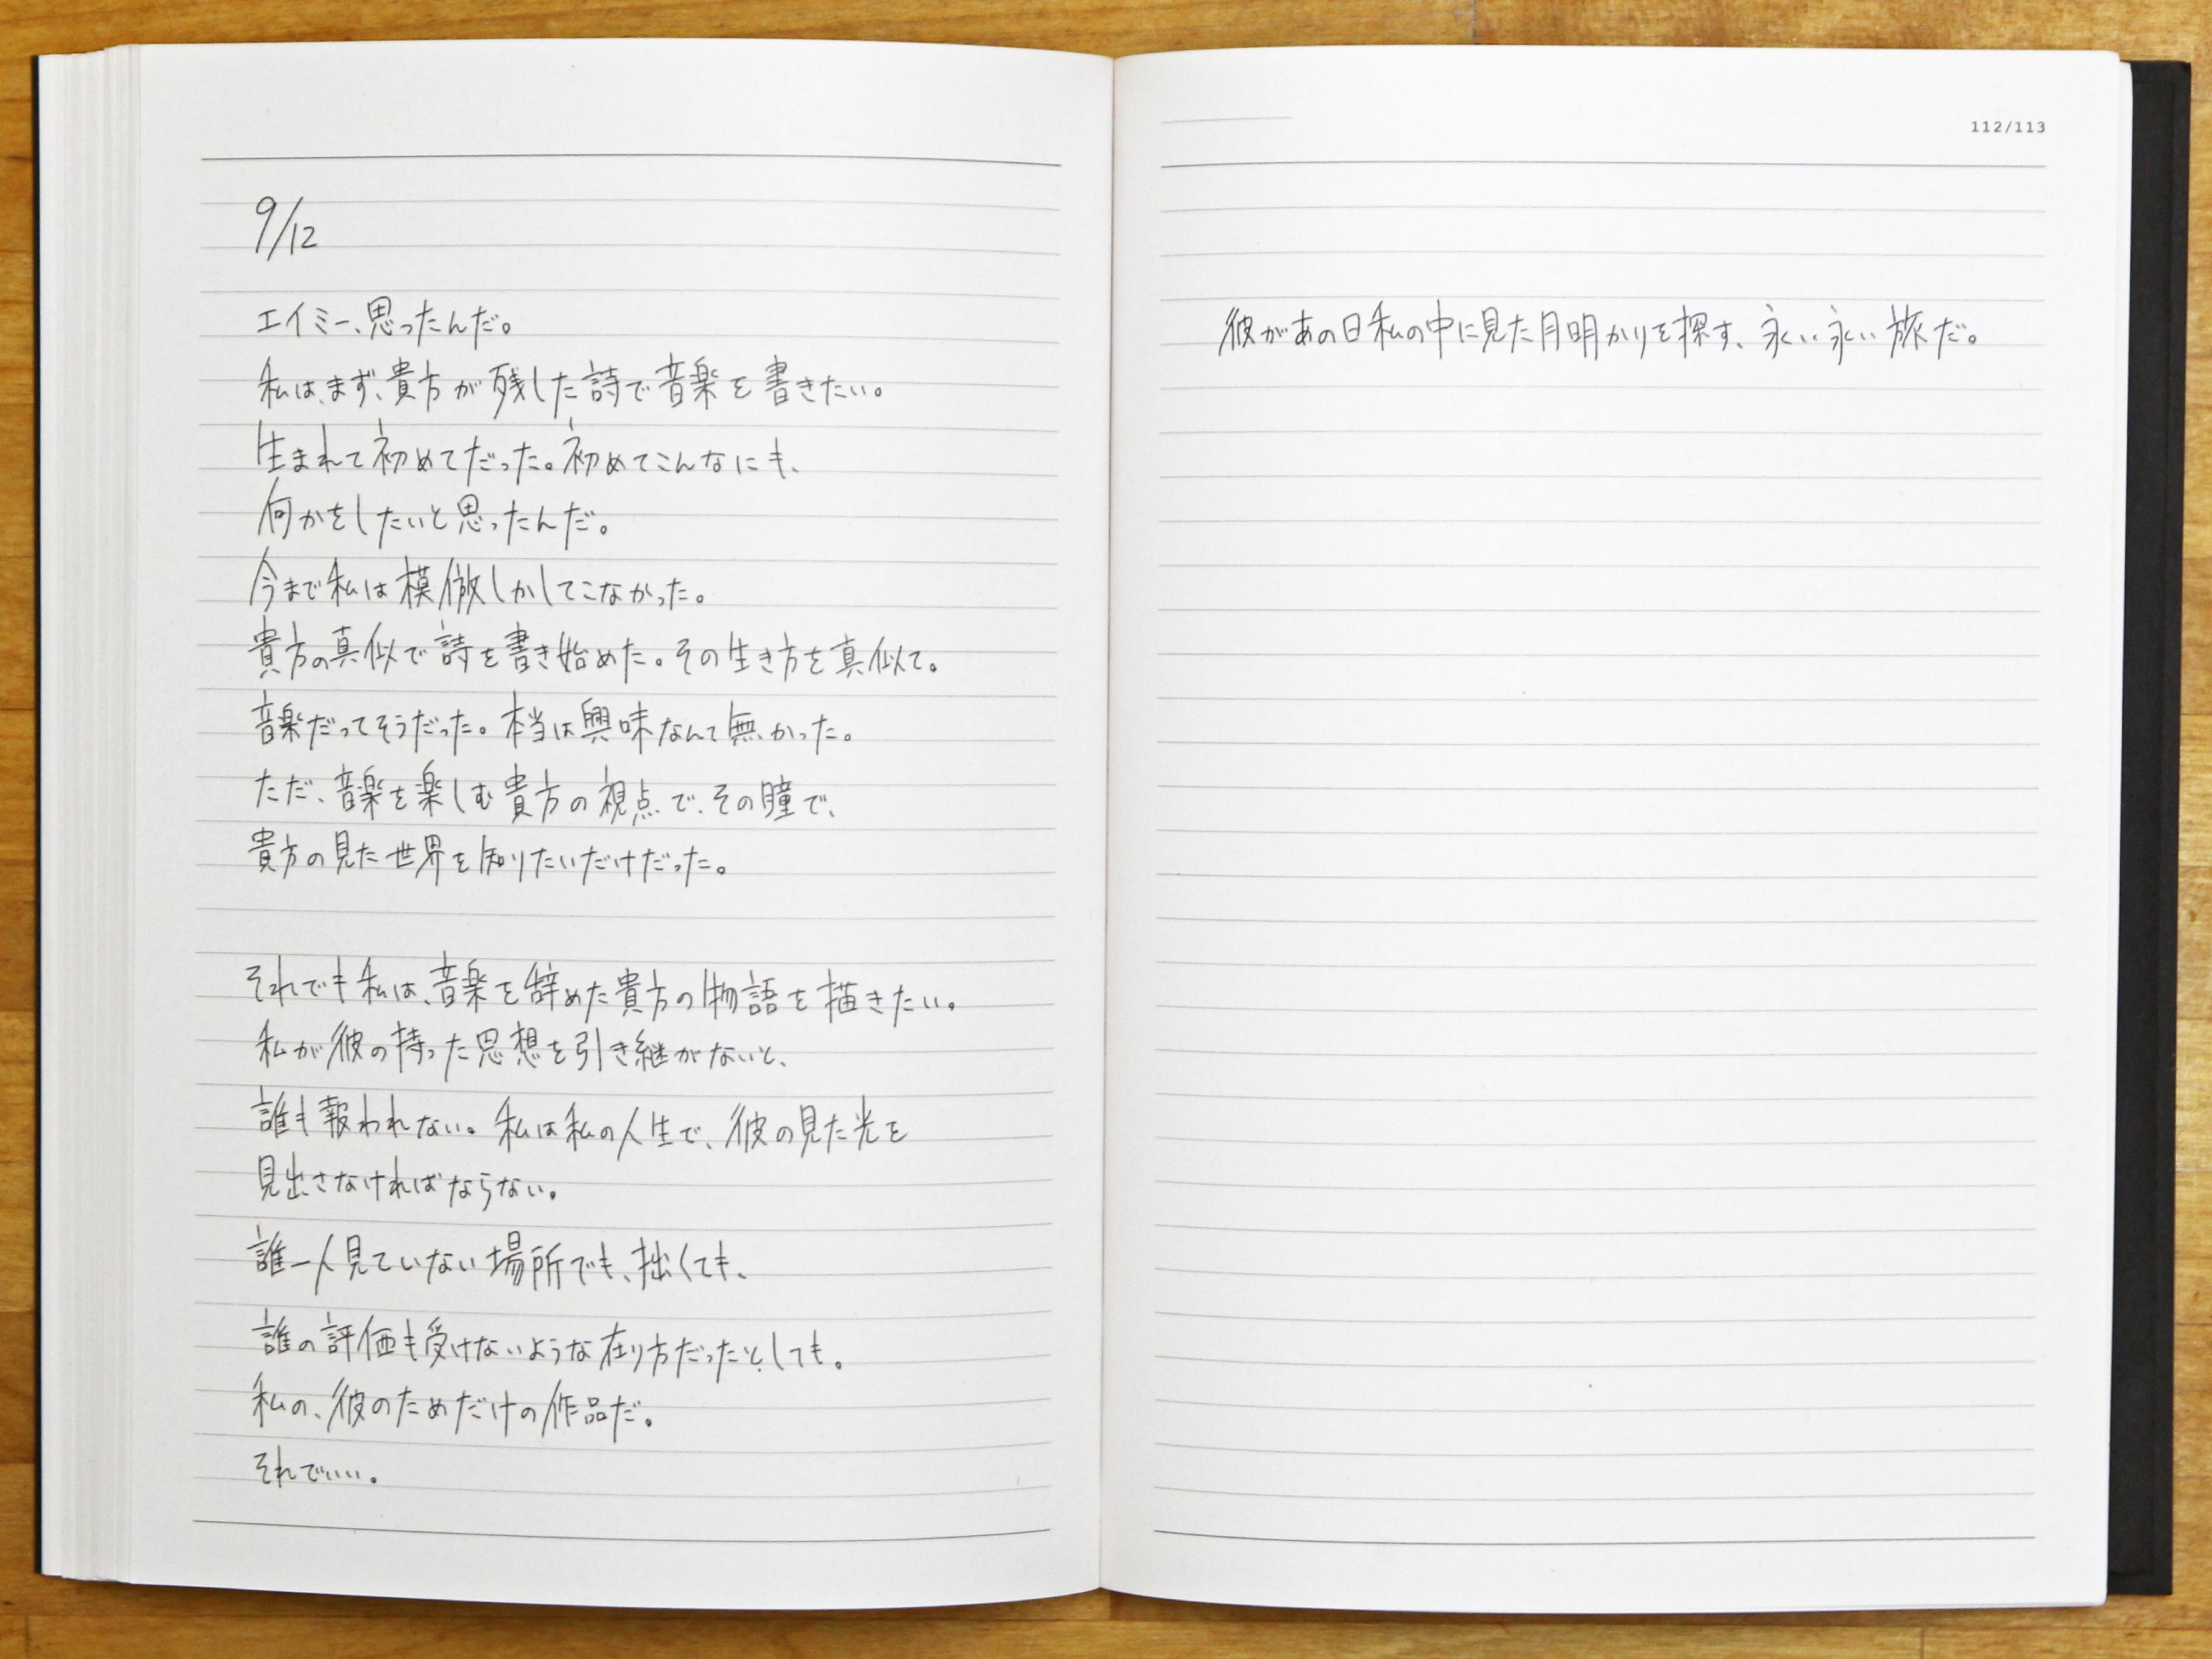 9/12
エイミー、思ったんだ。
私は、まず、貴方が残した詩で音楽を書きたい。
生まれて初めてだった。初めてこんなにも、
何かをしたいと思ったんだ。
今まで私は模倣しかしてこなかった。
貴方の真似で詩を書き始めた。その生き方を真似て。
音楽だってそうだった。本当は興味なんて無かった。
ただ、音楽を楽しむ貴方の視点で、その瞳で、
貴方の見た世界を知りたいだけだった。
それでも私は、音楽を辞めた貴方の物語を描きたい。
私が彼の持った思想を引き継がないと、
誰も報われない。私は私の人生で、彼の見た光を
見出さなければならない。
誰一人見ていない場所でも、拙くても、
誰の評価も受けないような在り方だったとしても。
私の、彼のためだけの作品だ。
それでいい。
112/113
彼があの日私の中に見た月明かりを探す、永い永い旅だ。